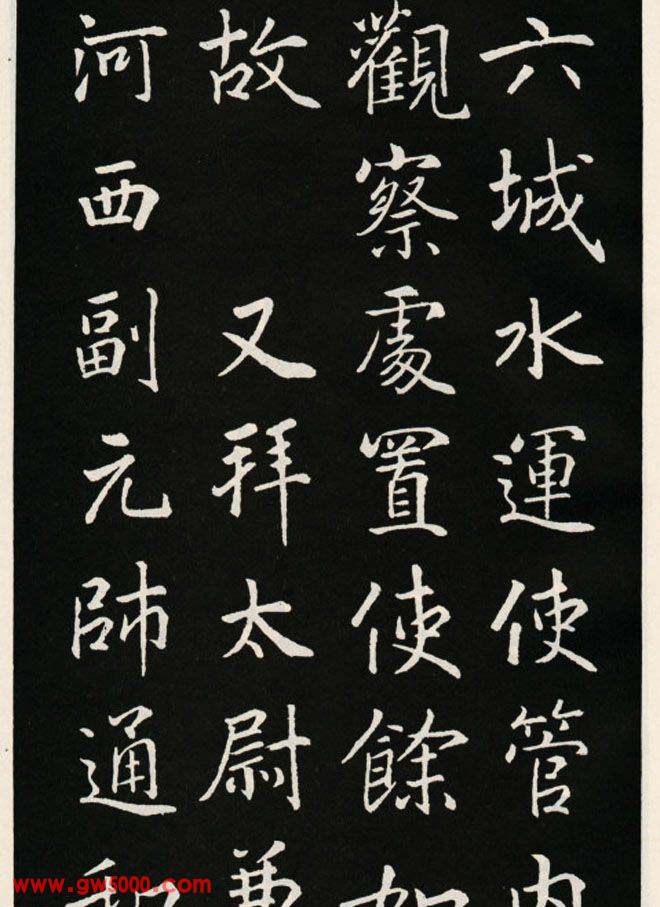 六城水運使管內
觀察處置使餘如
故 又拜太尉兼
河西副元帥通和
www.gw5000.com